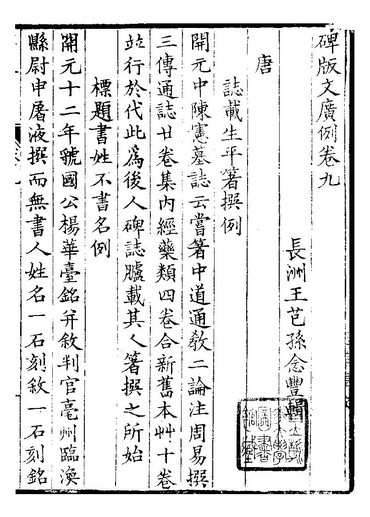 碑版文廣例卷九
長洲王芑孫念豐輯
唐
誌載生平著撰例
開元中陳憲墓誌云嘗著中道通教二論注周易撰
三傳通誌廿卷集內經藥類四卷合新舊本艸十卷
竝行於代此爲後人碑誌臚載其人著撰之所始
標題書姓不書名例
開元十二年虢國公楊華臺銘幷敘判官亳州臨渙
縣尉申屠液撰而無書人姓名一石刻敘一石刻銘